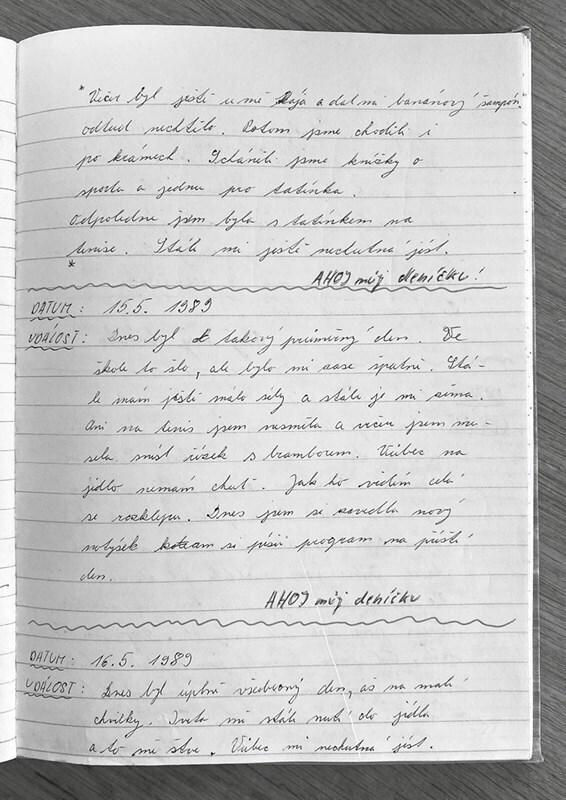 *Večer byl ještě u mě Rája a dal mi banánový šampón*
odtud nechtělo. Potom jsme chodili i
po krámech. Scháněli jsme knížky o
sportu a jednu pro tatínka.
Odpoledne jsem byla s tatínkem na
tenise. Stále mi ještě nechutná jíst.
*
AHOJ můj deníčku!
DATUM: 15.5. 1989
UDÁLOST: Dnes byl takový průměrný den. Ve
škole to šlo, ale bylo mi zase špatně. Stá-
le mám ještě málo síly a stále je mi zima.
Ani na tenis jsem nesměla a večer jsem mu-
sela sníst řízek s bramborem. Vůbec na
jídlo nemám chuť. Jak ho vidím celá
se rozklepu. Dnes jsem si zavedla nový
notýsek kam si píšu program na příští
den.
AHOJ můj deníčku
DATUM: 16.5. 1989
UDÁLOST: Dnes byl úplně všeobecný den, až na malé
chvilky. Iveta mi stále nutí do jídla
a to mě štve. Vůbec mi nechutná jíst.